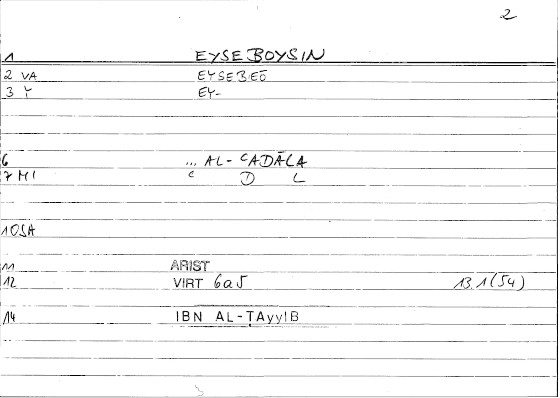 2
1 EYSEBOYSIN
2 VA EYSEBEŌ
3 Y EY-
6 ... AL-ᶜADĀLA
7 MI ᶜ D L
10SA
11 ARIST
12 VIRT 6a5 13.1(54)
14 IBN AL-ṬAyyIB